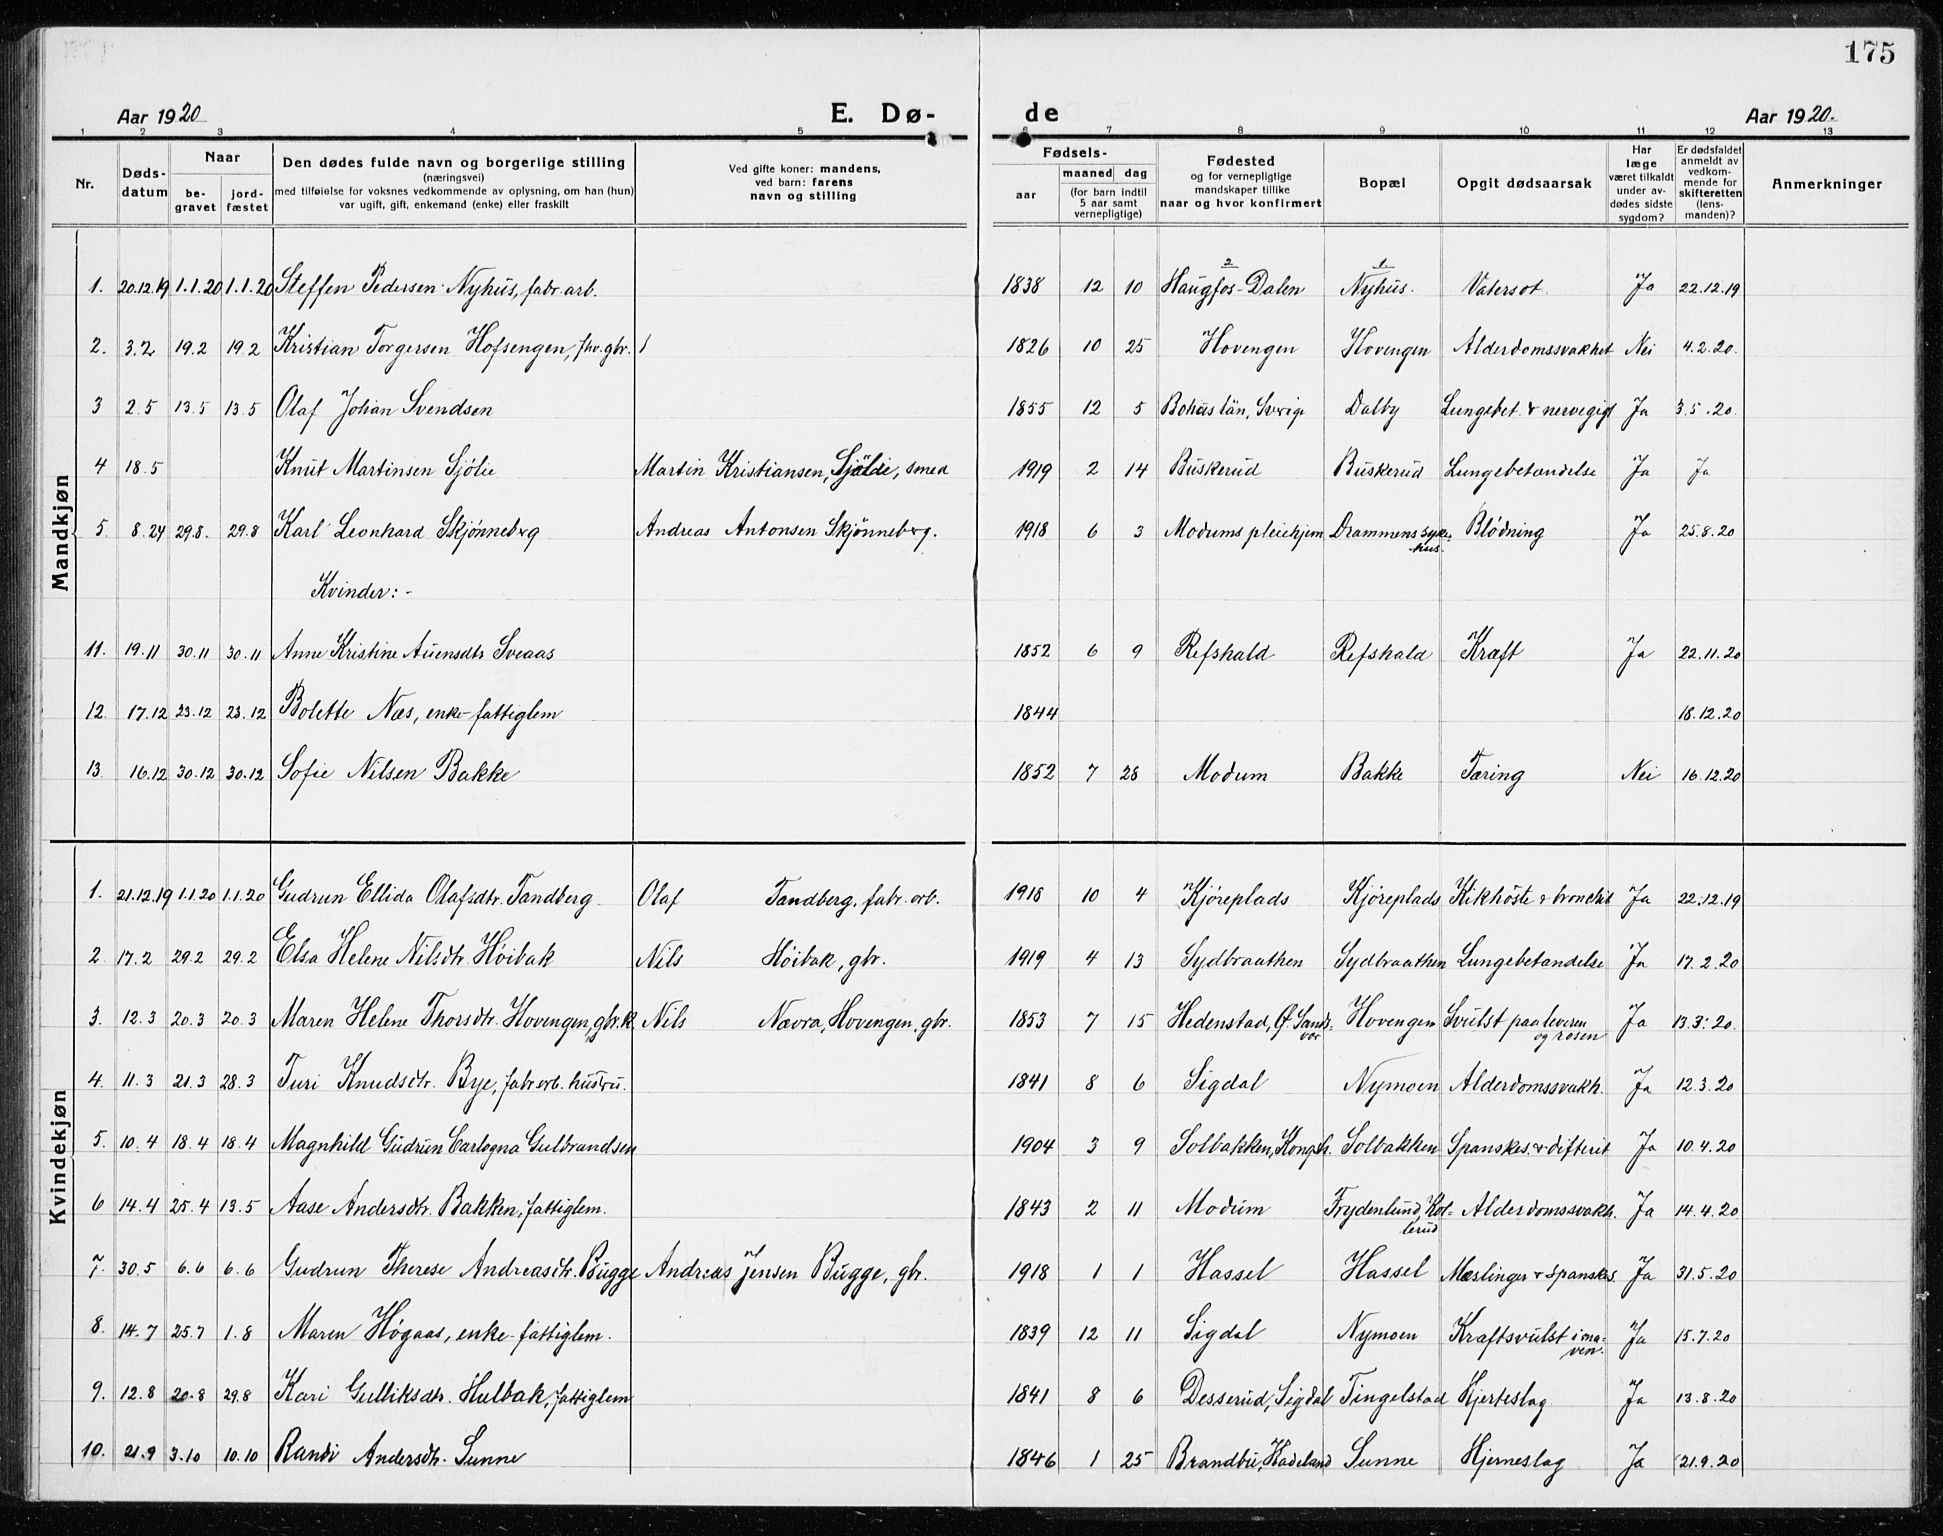 175
Aar 1920 E. Dø- de Aar 1920.
1 2 3 4 5 6 7 8 9 10 11 12 13
Nr.
Døds-
datum
Naar
be-
gravet
jord-
fæstet
Den dødes fulde navn og borgerlige stilling
(næringsvei)
med tilføielse for voksnes vedkommende av oplysning, om han (hun)
var ugift, gift, enkemand (enke) eller fraskilt
Ved gifte koner: mandens,
ved barn: farens
navn og stilling
Fødsels-
aar
maaned dag
(for barn indtil
5 aar samt
vernepligtige)
Fødested
og for vernepligtige
mandskaper tillike
naar og hvor konfirmert
Bopæl
Opgit dødsaarsak
Har
læge
været tilkaldt
under av-
dødes sidste
sygdom?
Er dødsfaldet
anmeldt av
vedkom-
mende for
skifteretten
(lens-
manden)?
Anmerkninger
Mandkjøn
2 1
1. 20.12.19 1.1.20 1.1.20 Steffen Pedersen Nyhus, fabr.arb. 1838 12 10 Haugfos-Dalen Nyhus. Vatersot. Ja 22.12.19
2. 3.2 19.2 19.2 Kristian Torgersen Hofsengen, fhv.gbr. 1826 10 25 Hovengen Hovengen Alderdomssvakhet Nei 4.2.20.
3 2.5 13.5 13.5 Olaf Johan Svendsen 1855 12 5 Bohus län, Sverige Dalby Lungebet. & nervegigt Ja 3.5.20.
4 18.5 Knut Martinsen Sjölie Martin Kristiansen, Sjölie, smed 1919 2 14 Buskerud Buskerud Lungebetændelse Ja Ja
5. 8.24 29.8. 29.8 Karl Leonhard Skjönneberg Andreas Antonsen Skjönneberg. 1918 6 3 Modums pleiehjem Drammens syke- Blödning Ja 25.8.20
hus.
Kvinder:-
11. 19.11 30.11 30.11 Anne Kristine Auensdtr Sveaas 1852 6 9 Refshald Refshald Kræft Ja 22.11.20
12. 17.12 23.12 23.12 Bolette Næs, enke-fattiglem 1844 18.12.20
13. 16.12 30.12 30.12 Sofie Nilsen Bakke 1852 7 28 Modum Bakke Tæring Nei 16.12.20
Kvindekjøn
1. 21.12.19 1.1.20 1.1.20 Gudrun Ellida Olafsdtr. Tandberg Olaf Tandberg, fabr.arb. 1918 10 4 Kjöreplads Kjöreplads Kikhöste & bronchit Ja 22.12.19
2 17.2 29.2 29.2 Elsa Helene Nilsdtr. Høibak Nils Høibak, gbr. 1919 4 13 Sydbraathen Sydbraathen Lungebetændelse Ja 17.2.20
3. 12.3 20.3 20.3 Maren Helene Thorsdtr. Hovengen, gbr.k. Nils Nævra, Hovengen, gbr. 1853 7 15 Hedenstad, Ø. Sands- Hovengen Svulst paa leveren Ja 13.3.20.
vær og rosen
4. 11.3 21.3 28.3 Turi Knudsdtr. Bye, fabr.arb. hustru. 1841 8 6 Sigdal Nymoen Alderdomssvakh. Ja 12.3.20
5. 10.4 18.4 18.4 Magnhild Gudrun Carlogna Gulbrandsen 1904 3 9 Solbakken, Kongsb. Solbakken Spanskes. & difterit Ja 10.4.20
6 14.4 25.4 13.5 Aase Andersdtr. Bakken, fattiglem. 1843 2 11 Modum Frydenlund, Kol- Alderdomssvakh. Ja 14.4.20
lerud
7. 30.5 6.6 6.6 Gudrun Therese Andreasdtr. Bugge Andreas Jensen Bugge, gbr. 1918 1 1 Hassel Hassel Mæslinger & spanskes. Ja 31.5.20
8. 14.7 25.7 1.8 Maren Høgaas, enke-fattiglem. 1839 12 11 Sigdal Nymoen Kræftsvulst i ma- Ja 15.7.20
ven.
9. 12.8 20.8 29.8 Kari Gulliksdtr. Hulbak, fattiglem 1841 8 6 Desserud, Sigdal Tingelstad Hjerteslag Ja 13.8.20
10. 21.9 3.10 10.10 Randi Andersdtr. Sunne 1846 1 25 Brandbu, Hadeland Sunne Hjerneslag Ja 21.9.20